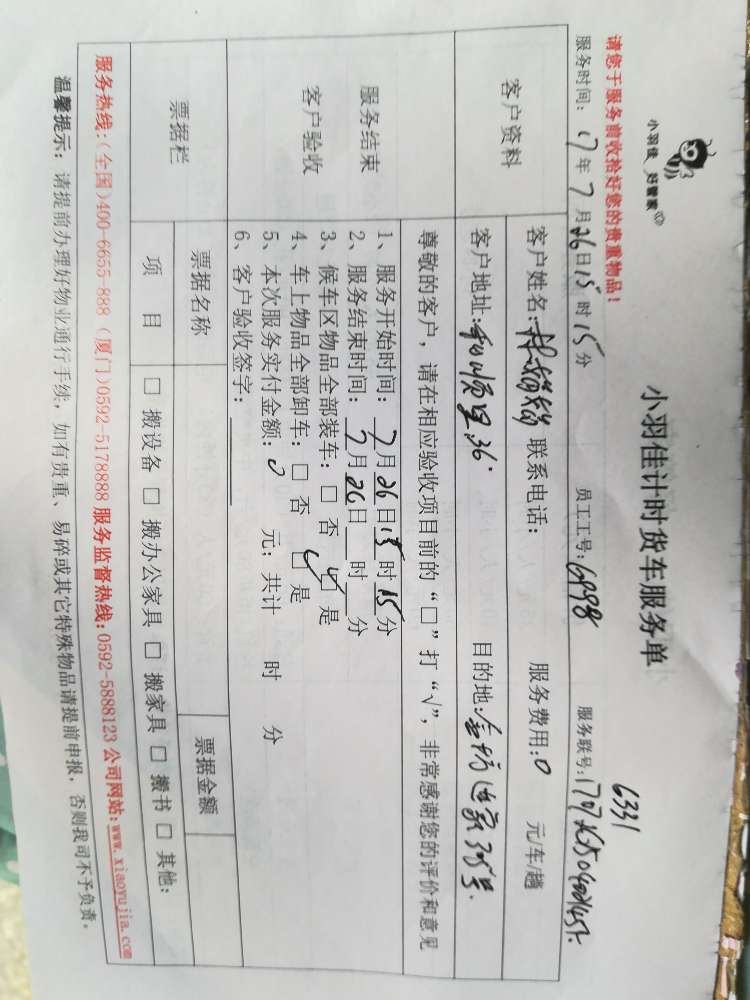 小羽佳 好管家
6331
小羽佳计时货车服务单
请您于服务前收拾好您的贵重物品!
服务时间: 17年7月26日15时15分 员工工号: 6998 服务联号:
客户资料
客户姓名: 联系电话: 服务费用: 0 元/车/趟
客户地址: 36. 目的地: 号.
服务结束
客户验收
尊敬的客户, 请在相应验收项目前的“□”打“√”, 非常感谢您的评价和意见
1、服务开始时间: 7月26日15时15分
2、服务结束时间: 7月26日 时 分
3、候车区物品全部装车: □ 否 □ 是
4、车上物品全部卸车: □ 否 □ 是
5、本次服务实付金额: 0 元; 共计 时 分
6、客户验收签字:
票据栏
票据名称 票据金额
项 目 □ 搬设备 □ 搬办公家具 □ 搬家具 □ 搬书 □ 其他:
服务热线:(全国)400-6655-888 (厦门)0592-5178888 服务监督热线: 0592-5888123 公司网站: www.xiaoyujia.com
温馨提示: 请提前办理好物业通行手续, 如有贵重、易碎或其它特殊物品请提前申报, 否则我司不予负责。